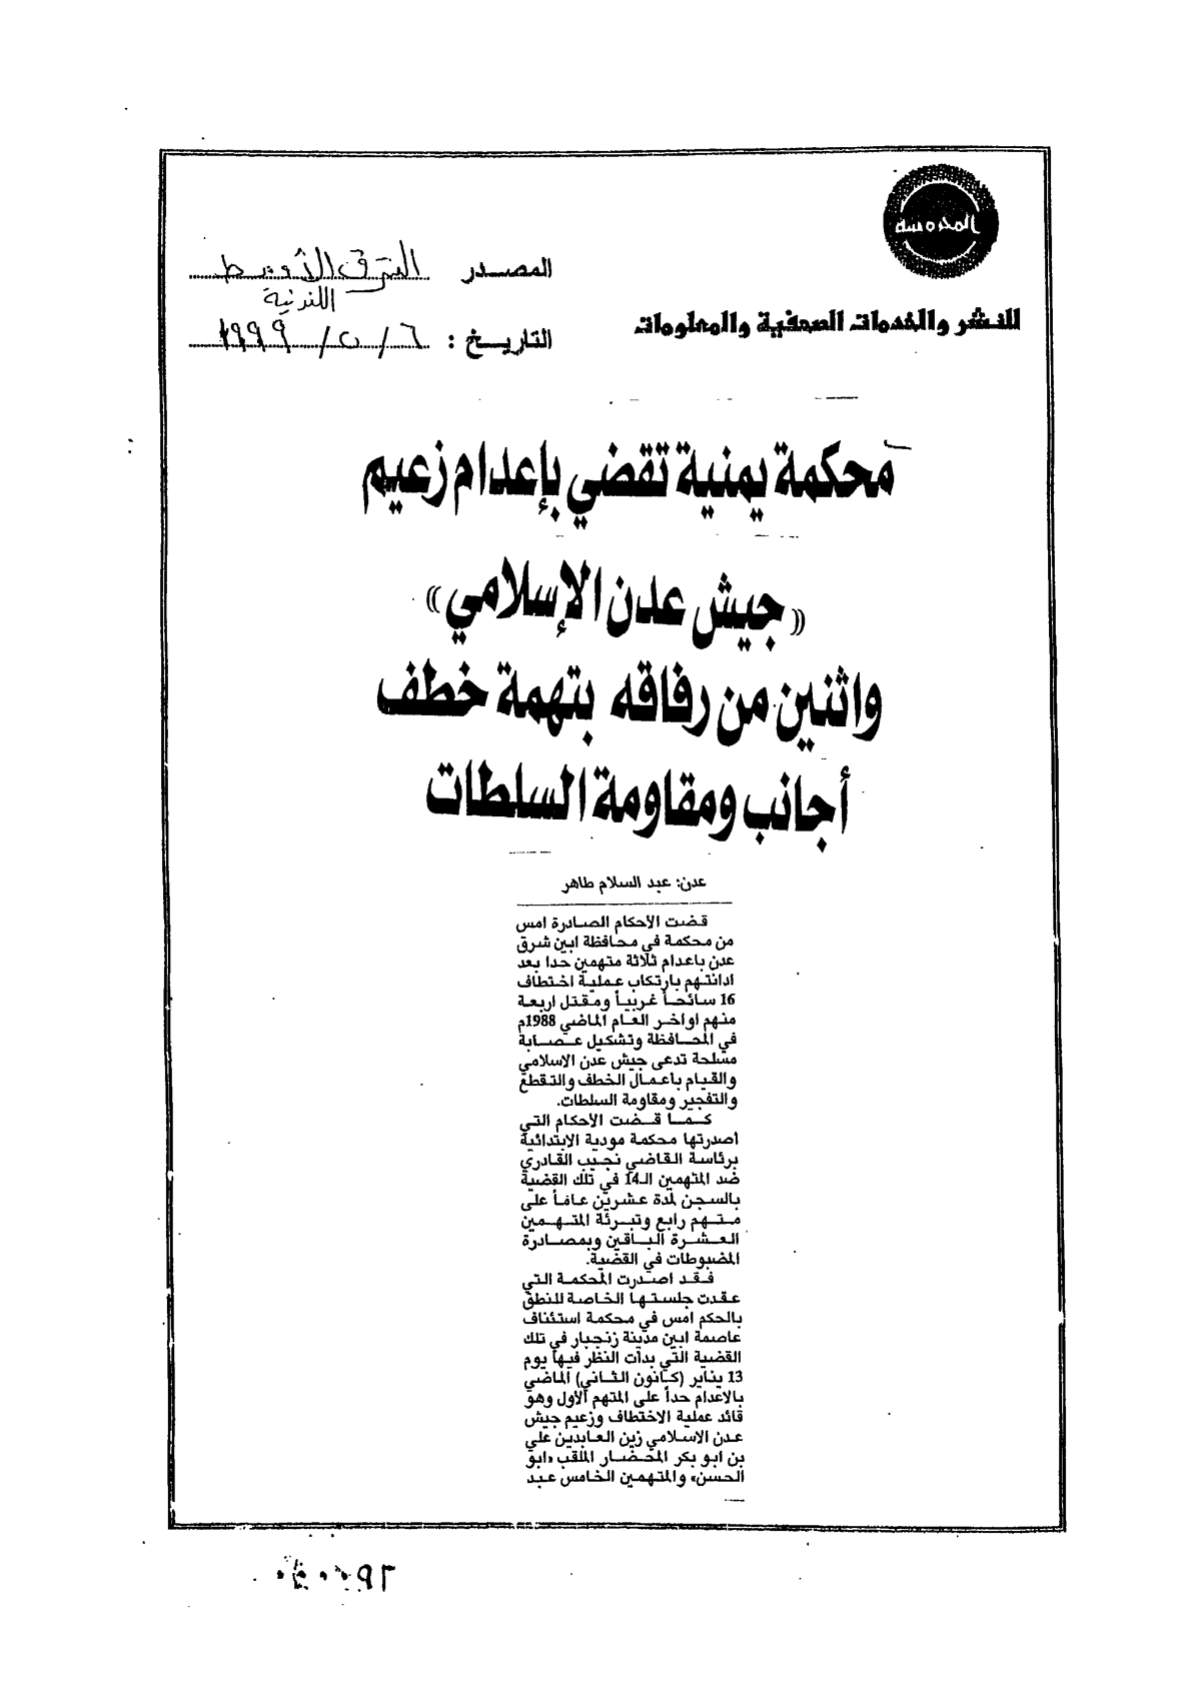 المحروسة
للنشر والخدمات الصحفية والمعلومات
المصدر الشرق الأوسط
اللندنية
التاريخ : ٦ / ٥ / ١٩٩٩
محكمة يمنية تقضي بإعدام زعيم
«جيش عدن الإسلامي»
واثنين من رفاقه بتهمة خطف
أجانب ومقاومة السلطات
عدن: عبد السلام طاهر
قضت الأحكام الصادرة امس
من محكمة في محافظة ابين شرق
عدن باعدام ثلاثة متهمين حدا بعد
ادانتهم بارتكاب عملية اختطاف
16 سائحاً غربياً ومقتل اربعة
منهم اواخر العام الماضي 1988م
في المحافظة وتشكيل عصابة
مسلحة تدعى جيش عدن الاسلامي
والقيام بأعمال الخطف والتقطع
والتفجير ومقاومة السلطات.
كما قضت الأحكام التي
اصدرتها محكمة مودية الابتدائية
برئاسة القاضي نجيب القادري
ضد المتهمين الـ14 في تلك القضية
بالسجن لمدة عشرين عاماً على
متهم رابع وتبرئة المتهمين
العشرة الباقين وبمصادرة
المضبوطات في القضية.
فقد اصدرت المحكمة التي
عقدت جلستها الخاصة للنطق
بالحكم امس في محكمة استئناف
عاصمة ابين مدينة زنجبار في تلك
القضية التي بدأت النظر فيها يوم
13 يناير (كانون الثاني) الماضي
بالاعدام حداً على المتهم الأول وهو
قائد عملية الاختطاف وزعيم جيش
عدن الاسلامي زين العابدين علي
بن ابو بكر المحضار الملقب «ابو
الحسن» والمتهمين الخامس عبد